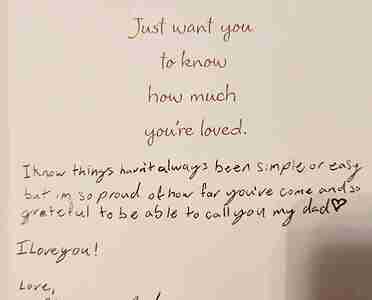 Just want you
to know
how much
you're loved.
I know things havn't always been simple or easy
but im so proud of how far you've come and so
grateful to be able to call you my dad♡
I love you!
Love,